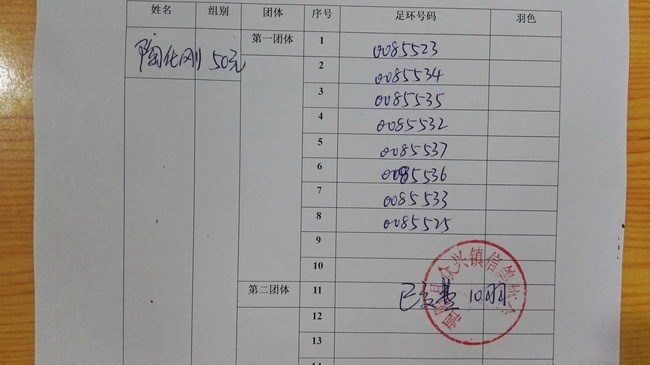 姓名 组别 团体 序号 足环号码 羽色
陶化刚 50元 第一团体 1 0085523
2 0085534
3 0085535
4 0085532
5 0085537
6 0085536
7 0085533
8 0085525
9
10
第二团体 11 已查 10羽
12
13
兴镇信鸽